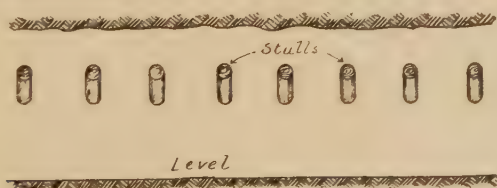 Stulls
Level